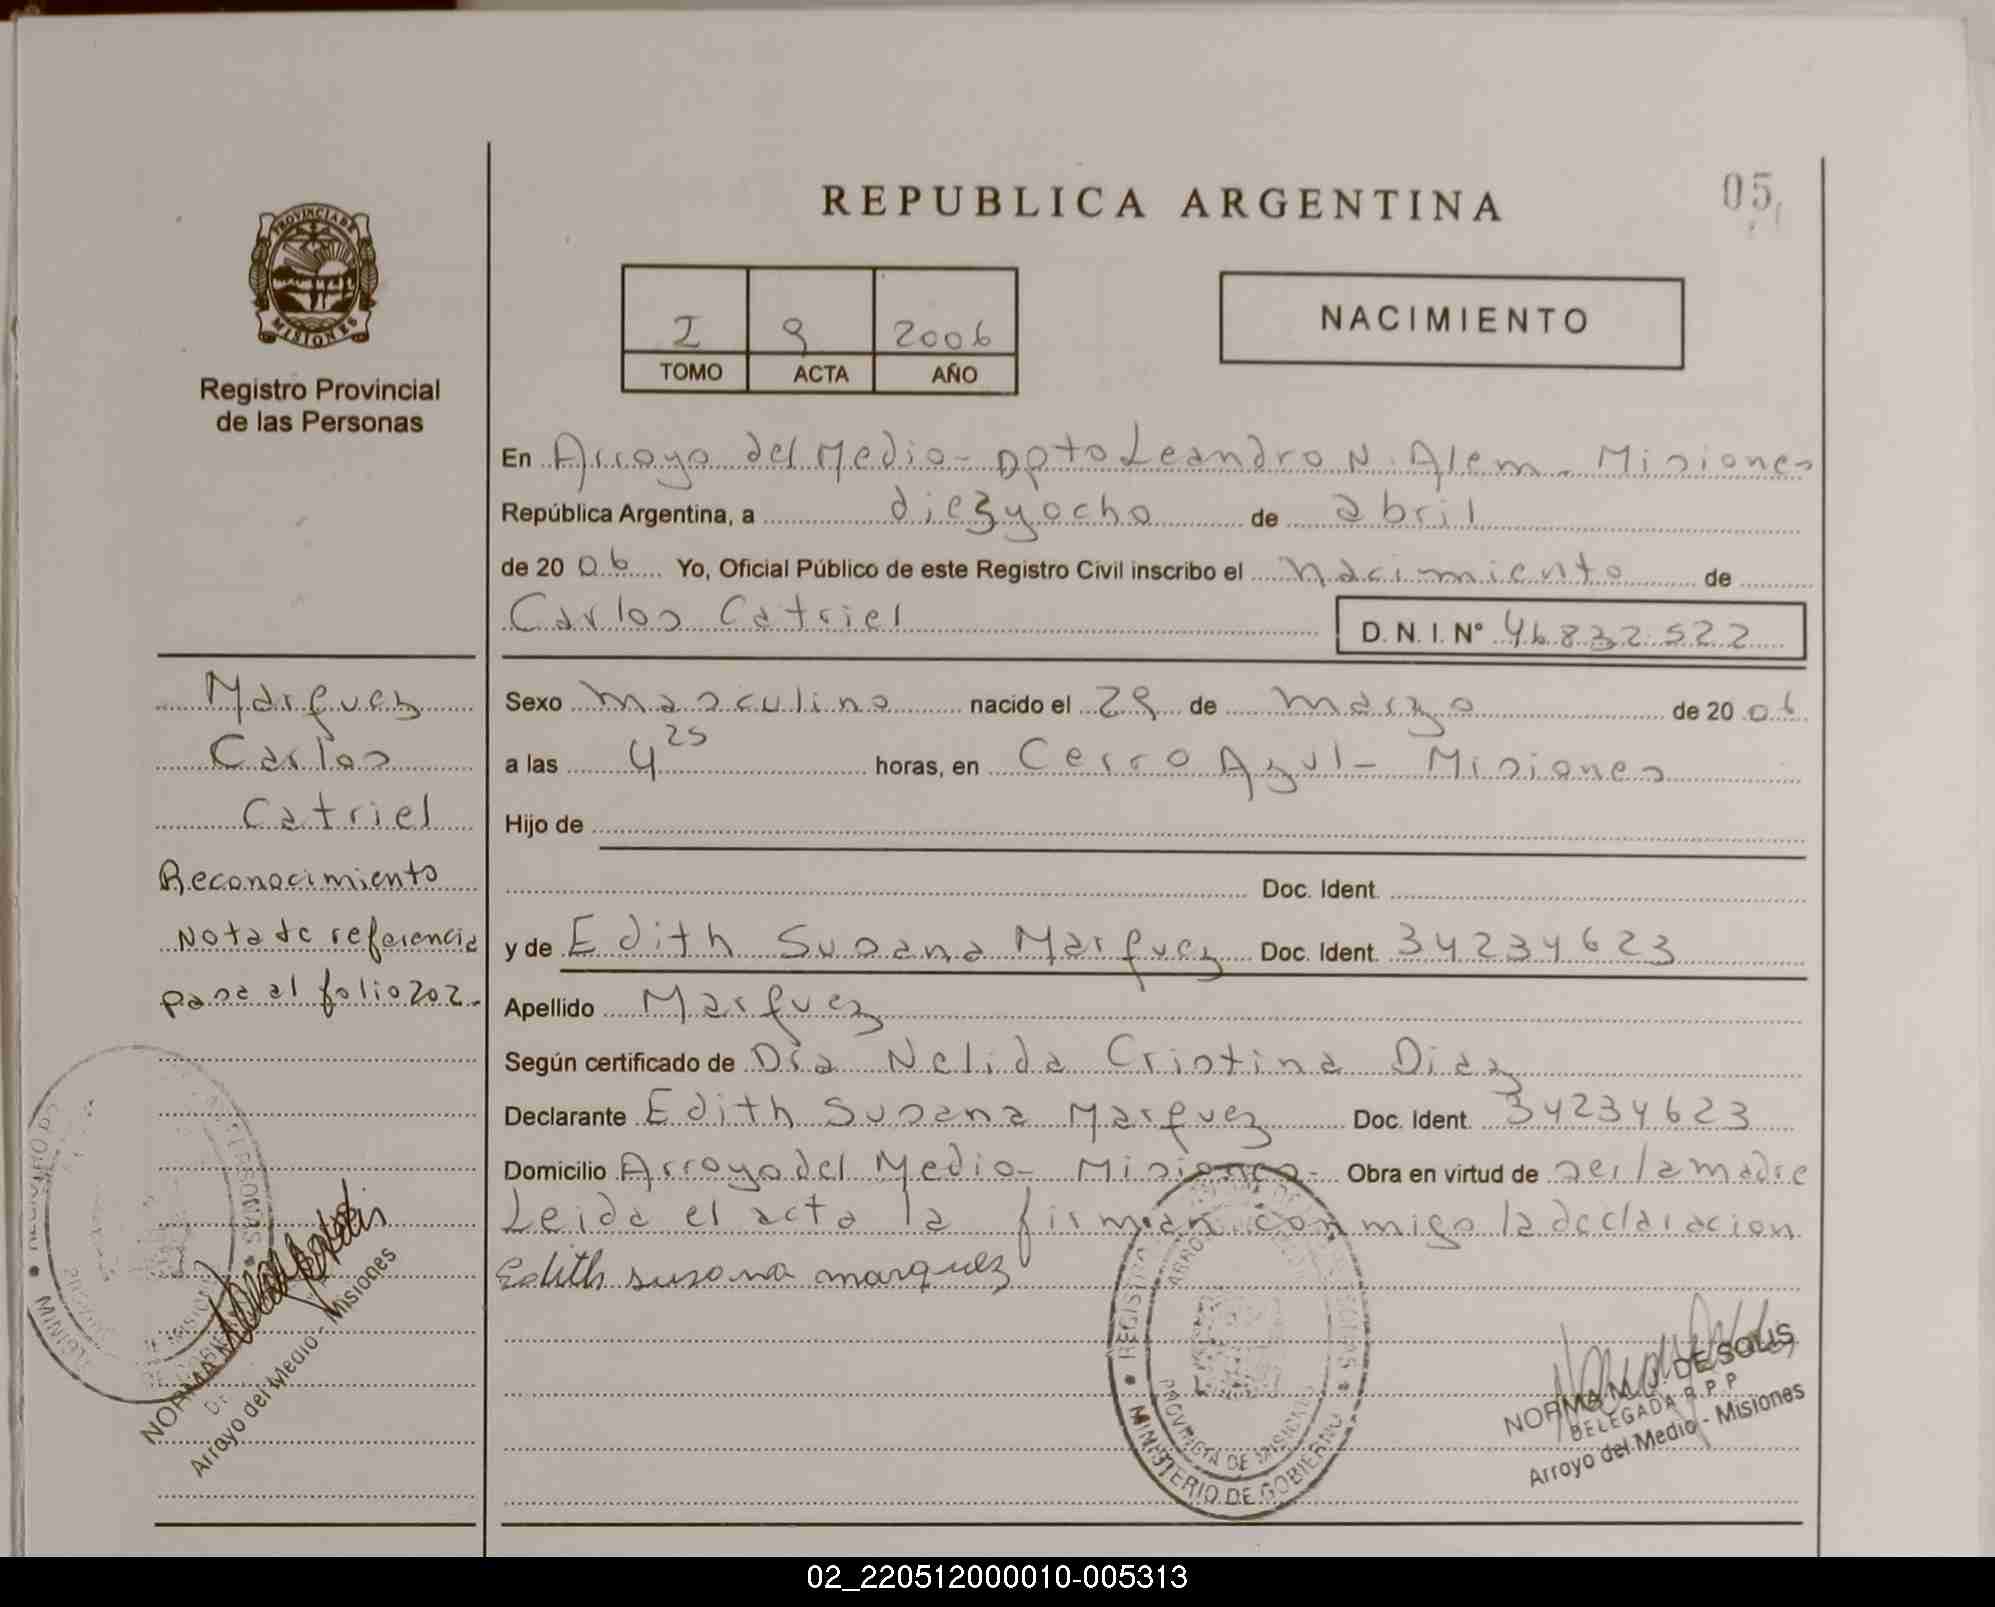 REPUBLICA ARGENTINA
05
PROVINCIA DE
MISIONES
Registro Provincial
de las Personas
I 9 2006
TOMO ACTA AÑO
NACIMIENTO
En Arroyo del Medio - Dpto Leandro N. Alem - Misiones
República Argentina, a diezyocho de abril
de 20 06 Yo, Oficial Público de este Registro Civil inscribo el nacimiento de
Carlos Catriel D. N. I. Nº 46832522
Marquez
Carlos
Catriel
Reconocimiento
Nota de referencia
pasa al folio 202.
Sexo masculino nacido el 29 de marzo de 20 06
a las 4 25 horas, en Cerro Azul - Misiones
Hijo de
Doc. Ident.
y de Edith Susana Marquez Doc. Ident. 34234623
Apellido Marquez
Según certificado de Dra Nelida Cristina Diaz
Declarante Edith Susana Marquez Doc. Ident. 34234623
Domicilio Arroyo del Medio - Misiones - Obra en virtud de ser la madre
Leida el acta la firman conmigo la declaracion
Edith susana marquez
NORMA
Arroyo del Medio - Misiones
REGISTRO
PROVINCIA DE MISIONES
MINISTERIO DE GOBIERNO
NORMA M. J. DE SOLIS
DELEGADA R. P. P
Arroyo del Medio - Misiones
02_220512000010-005313